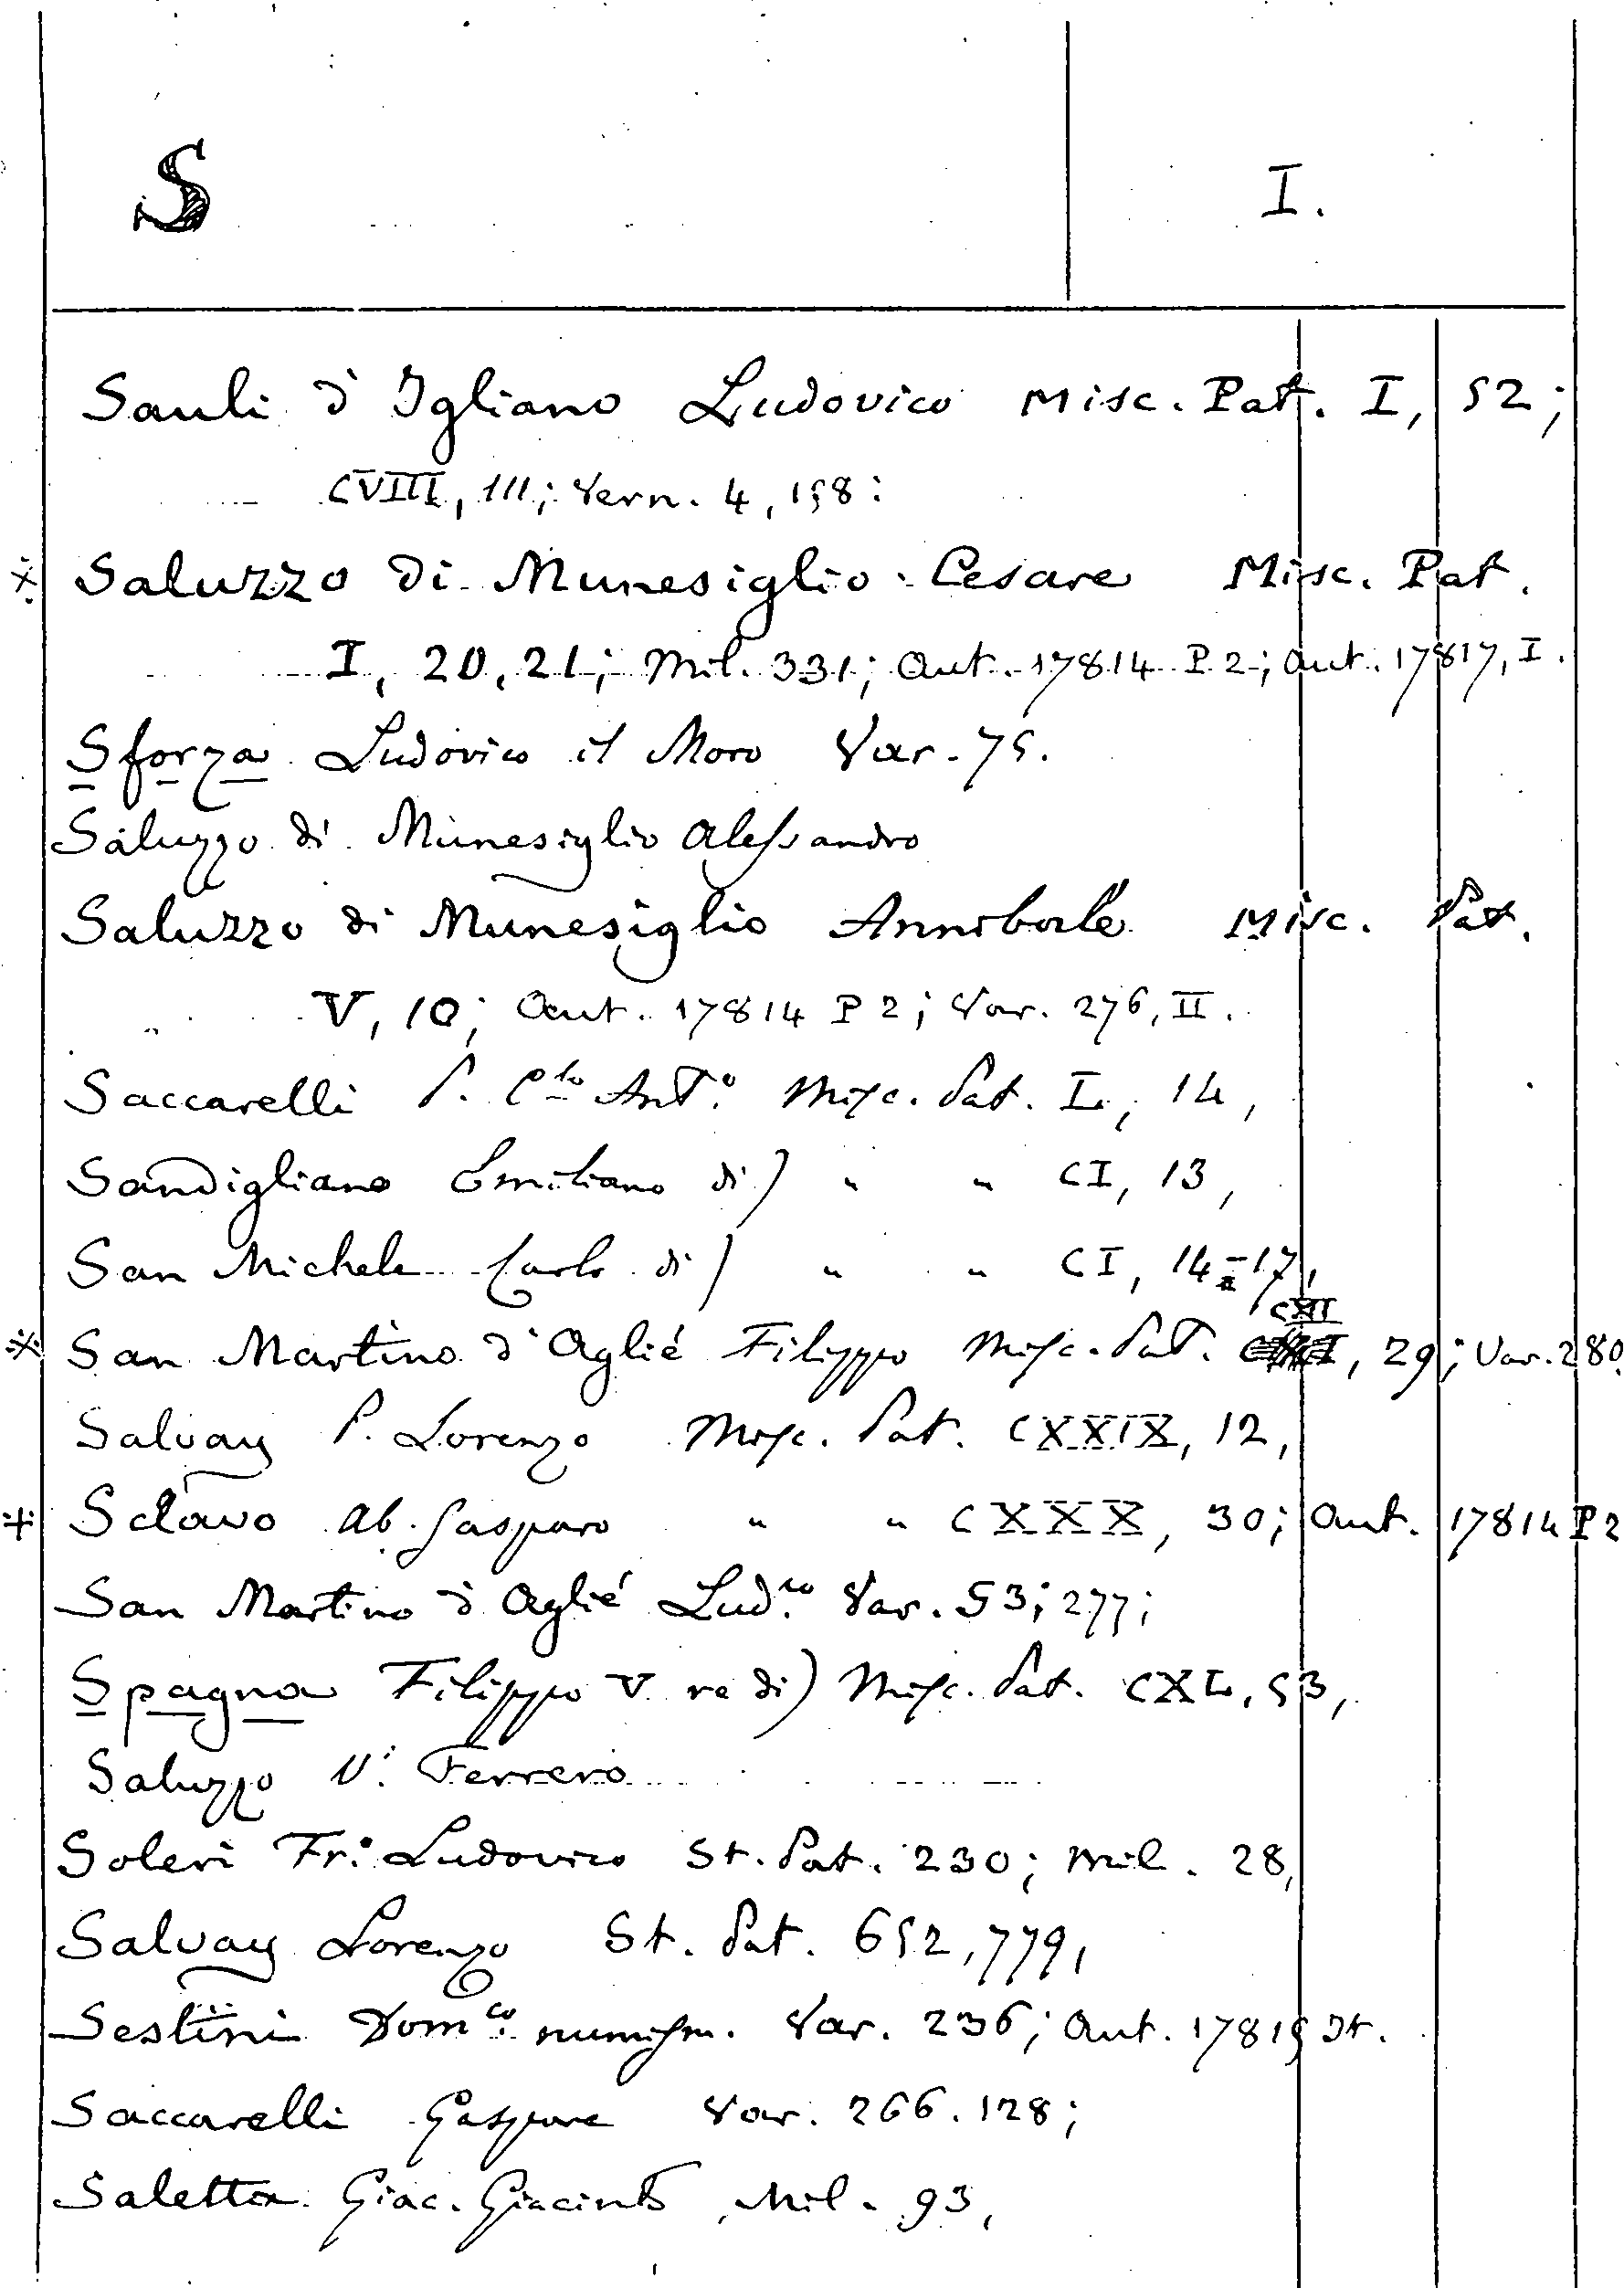 S I.
Sauli d' Igliano Ludovico Misc. Pat. I, 52;
CVIII, 111; Vern. 4, 158:
Saluzzo di Munesiglio Cesare Misc. Pat.
I, 20, 21; Mil. 331; Aut. 17814 P 2; Aut. 17817, I.
Sforza Ludovico il Moro Var. 75.
Saluzzo di Munesiglio Alessandro
Saluzzo di Munesiglio Annibale Misc. Pat.
V, 10; Aut. 17814 P 2; Var. 276, II.
Saccarelli P. C.lo Ant.o Misc. Pat. L, 14,
Sandigliano Emiliano di) " " CI, 13,
San Michele Carlo di) " " CI, 14-17,
CXII
San Martino d' Aglié Filippo Misc. Pat. , 29; Var. 280.
Salvay P. Lorenzo Misc. Pat. CXXIX, 12,
Sclavo Ab. Gasparo " " CXXX, 30; Aut. 17814 P 2
San Martino d' Aglié Lud.co Var. 53; 277;
Spagna Filippo V re di) Misc. Pat. CXL, 53,
Saluzzo V: Ferrero
Soleri Fr: Ludovico St. Pat. 230; Mil. 28,
Salvay Lorenzo St. Pat. 652, 779,
Sestini Dom.co numism. Var. 236; Aut. 17815 St.
Saccarelli Gaspare Var. 266. 128;
Saletta Giac. Giacinto Mil. 93,